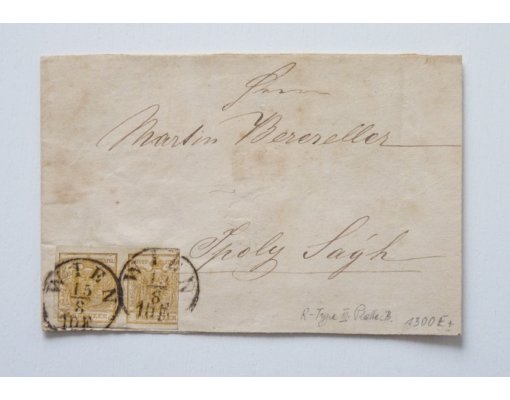 Herrn
Martin Berczeller
Ipoly Ságh
WIEN
15
8
10F
WIEN
15
8
10F
R-Type III Platte B.
1300E+